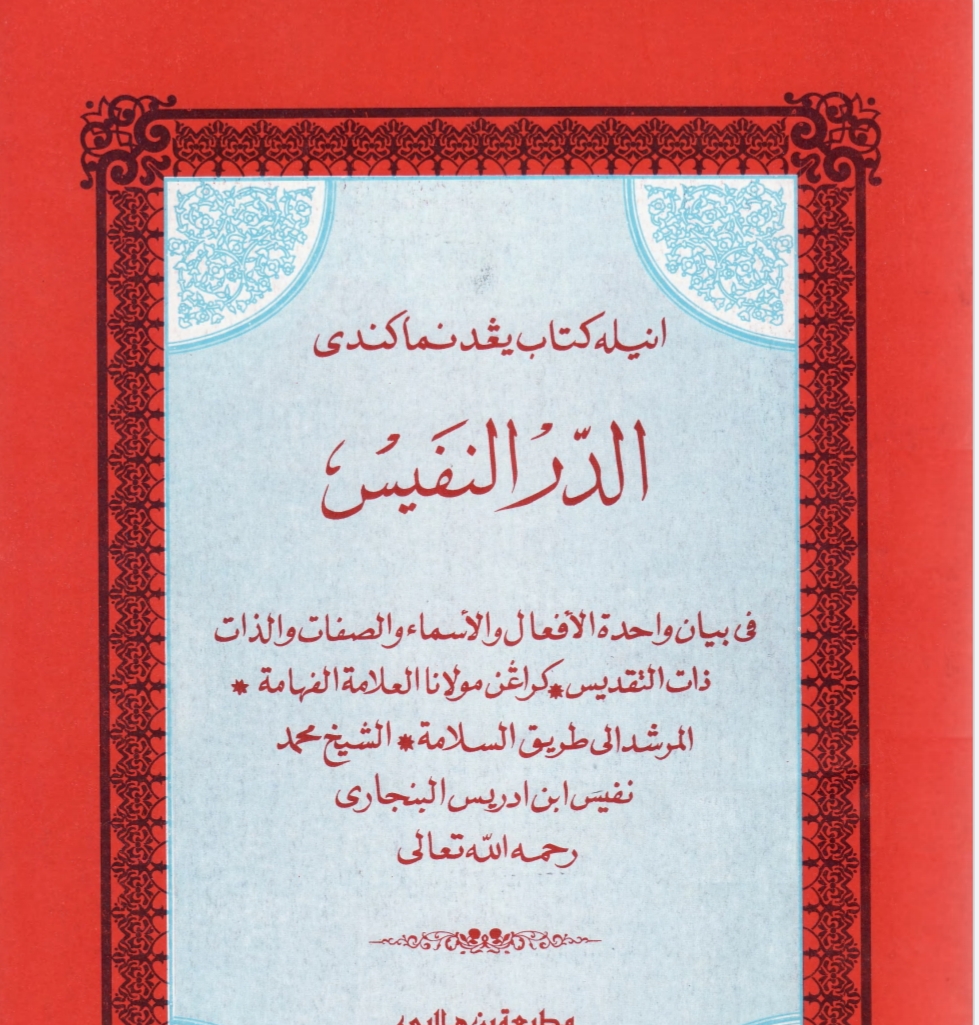 انيله كتاب يڠد نماكندى
الدّرْ النفَيسْ
فى بيان واحدة الأفعال والأسماء والصفات والذات
ذات التقديس * كراڠن مولانا العلامة الفهامة *
المرشد الى طريق السلامة * الشيخ محمد
نفيسَ ابن ادريس البنجارى
رحمه الله تعالى